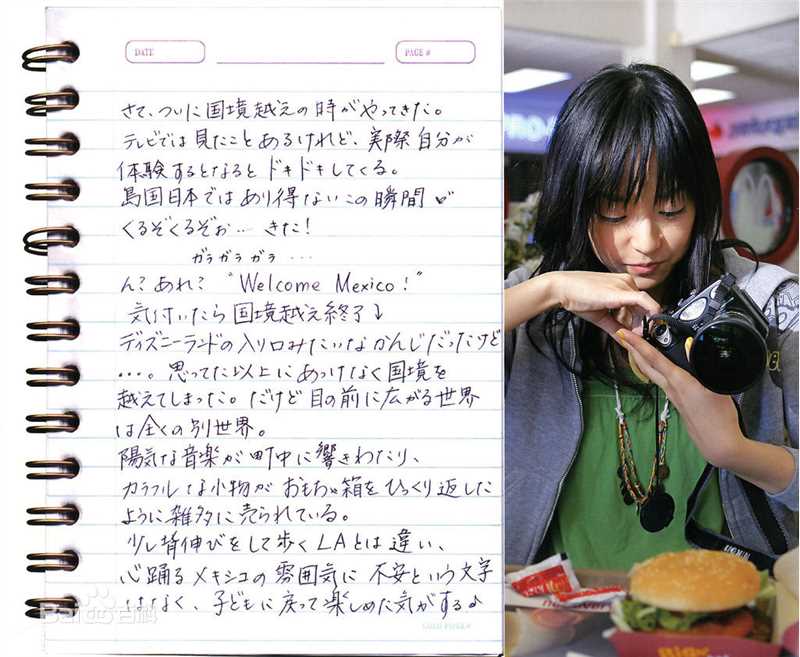 DATE
PAGE #
さて、ついに国境越えの時がやってきた。
テレビでは見たことあるけれど、実際自分が
体験するとなるとドキドキしてくる。
島国日本ではあり得ないこの瞬間
くるぞくるぞぉ… きた!
ガラガラガラ…
ん?あれ? "Welcome Mexico!"
気付いたら国境越え終了↓
ディズニーランドの入り口みたいなかんじだったけど
…。思ってた以上にあっけなく国境を
越えてしまった。だけど目の前に広がる世界
は全くの別世界。
陽気な音楽が町中に響きわたり、
カラフルな小物がおもちゃ箱をひっくり返した
ように雑多に売られている。
少し背伸びをして歩くLAとは違い、
心踊るメキシコの雰囲気に不安という文字
はなく、子どもに戻って楽しめた気がする♪
Baidu百科
NIKON